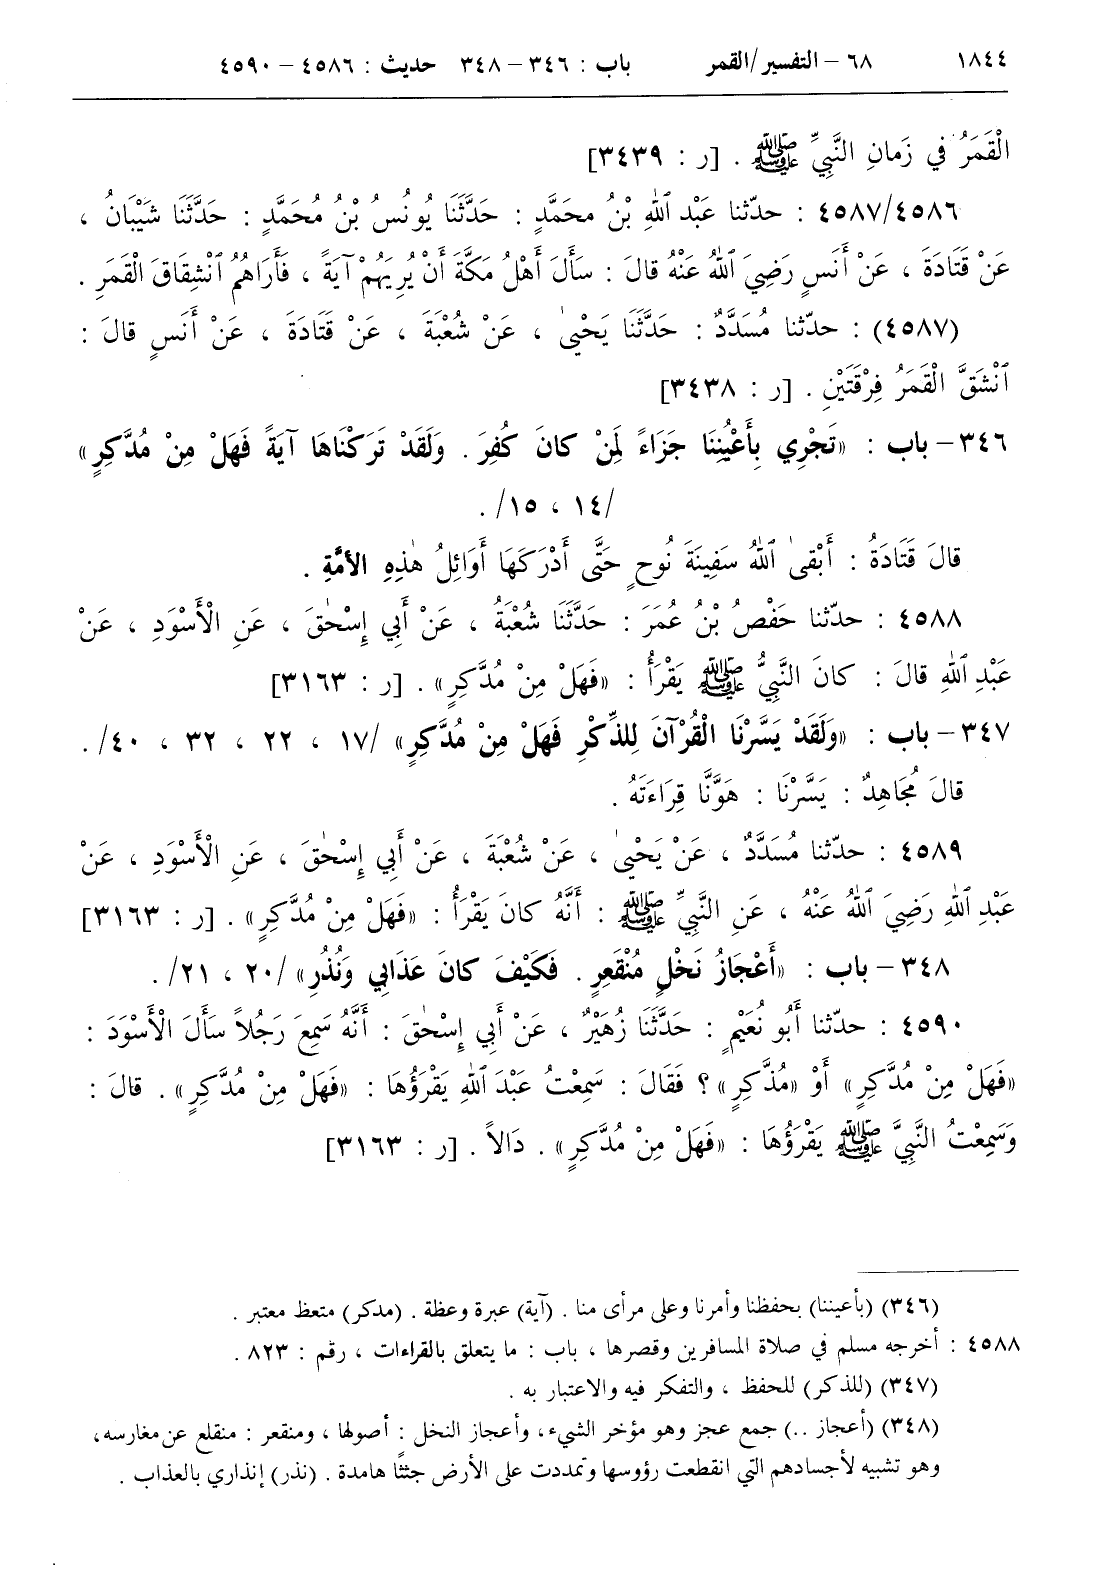 ١٨٤٤ ٦٨ – التفسير/القمر باب : ٣٤٦ – ٣٤٨ حديث : ٤٥٨٦ – ٤٥٩٠
الْقَمَرُ في زَمانِ النَّبِيِّ ﷺ . [ر : ٣٤٣٩]
٤٥٨٧/٤٥٨٦ : حدّثنا عَبْد ٱللهِ بْنُ محَمَّدٍ : حَدَّثَنَا يُونُسُ بْنُ مُحَمَّدٍ : حَدَّثَنَا شَيْبَانُ ،
عَنْ قَتَادَةَ ، عَنْ أَنَسٍ رَضِيَ ٱللهُ عَنْهُ قالَ : سَأَلَ أَهْلُ مَكَّةَ أَنْ يُرِيَهُمْ آيَةً ، فَأَرَاهُمُ ٱنْشِقَاقَ الْقَمَرِ .
(٤٥٨٧) : حدّثنا مُسَدَّدٌ : حَدَّثَنَا يَحْيىٰ ، عَنْ شُعْبَةَ ، عَنْ قَتَادَةَ ، عَنْ أَنَسٍ قالَ :
ٱنْشَقَّ الْقَمَرُ فِرْقَتَيْنِ . [ر : ٣٤٣٨]
٣٤٦ – باب : «تَجْرِي بِأَعْيُنِنَا جَزَاءً لِمَنْ كانَ كُفِرَ . وَلَقَدْ تَرَكْنَاهَا آيَةً فَهَلْ مِنْ مُدَّكِرٍ»
/١٤ ، ١٥/ .
قالَ قَتَادَةُ : أَبْقىٰ ٱللهُ سَفِينَةَ نُوحٍ حَتَّى أَدْرَكَهَا أَوَائِلُ هٰذِهِ الأمَّةِ .
٤٥٨٨ : حدّثنا حَفْصُ بْنُ عُمَرَ : حَدَّثَنَا شُعْبَةُ ، عَنْ أَبِي إِسْحٰقَ ، عَنِ الْأَسْوَدِ ، عَنْ
عَبْدِ ٱللهِ قالَ : كانَ النَّبِيُّ ﷺ يَقْرَأُ : «فَهَلْ مِنْ مُدَّكِرٍ» . [ر : ٣١٦٣]
٣٤٧ – باب : «وَلَقَدْ يَسَّرْنَا الْقُرْآنَ لِلذِّكْرِ فَهَلْ مِنْ مُدَّكِرٍ» /١٧ ، ٢٢ ، ٣٢ ، ٤٠/ .
قالَ مُجَاهِدٌ : يَسَّرْنَا : هَوَّنَّا قِرَاءَتَهُ .
٤٥٨٩ : حدّثنا مُسَدَّدٌ ، عَنْ يَحْيىٰ ، عَنْ شُعْبَةَ ، عَنْ أَبِي إِسْحٰقَ ، عَنِ الْأَسْوَدِ ، عَنْ
عَبْدِ ٱللهِ رَضِيَ ٱللهُ عَنْهُ ، عَنِ النَّبِيِّ ﷺ : أَنَّهُ كانَ يَقْرَأُ : «فَهَلْ مِنْ مُدَّكِرٍ» . [ر : ٣١٦٣]
٣٤٨ – باب : «أَعْجَازُ نَخْلٍ مُنْقَعِرٍ . فَكَيْفَ كانَ عَذَابِي وَنُذُرِ» /٢٠ ، ٢١/ .
٤٥٩٠ : حدّثنا أَبُو نُعَيْمٍ : حَدَّثَنَا زُهَيْرٌ ، عَنْ أَبِي إِسْحٰقَ : أَنَّهُ سَمِعَ رَجُلاً سَأَلَ الْأَسْوَدَ :
«فَهَلْ مِنْ مُدَّكِرٍ» أَوْ «مُذَّكِرٍ» ؟ فَقَالَ : سَمِعْتُ عَبْدَ ٱللهِ يَقْرَؤُهَا : «فَهَلْ مِنْ مُدَّكِرٍ» . قالَ :
وَسَمِعْتُ النَّبِيَّ ﷺ يَقْرَؤُهَا : «فَهَلْ مِنْ مُدَّكِرٍ» . دَالاً . [ر : ٣١٦٣]
(٣٤٦) (بأعيننا) بحفظنا وأمرنا وعلى مرأى منا . (آية) عبرة وعظة . (مدكر) متعظ معتبر .
٤٥٨٨ : أخرجه مسلم في صلاة المسافرين وقصرها ، باب : ما يتعلق بالقراءات ، رقم : ٨٢٣ .
(٣٤٧) (للذكر) للحفظ ، والتفكر فيه والاعتبار به .
(٣٤٨) (أعجاز ..) جمع عجز وهو مؤخر الشيء، وأعجاز النخل : أصولها ، ومنقعر : منقلع عن مغارسه،
وهو تشبيه لأجسادهم التي انقطعت رؤوسها وتمددت على الأرض جثثًا هامدة . (نذر) إنذاري بالعذاب .